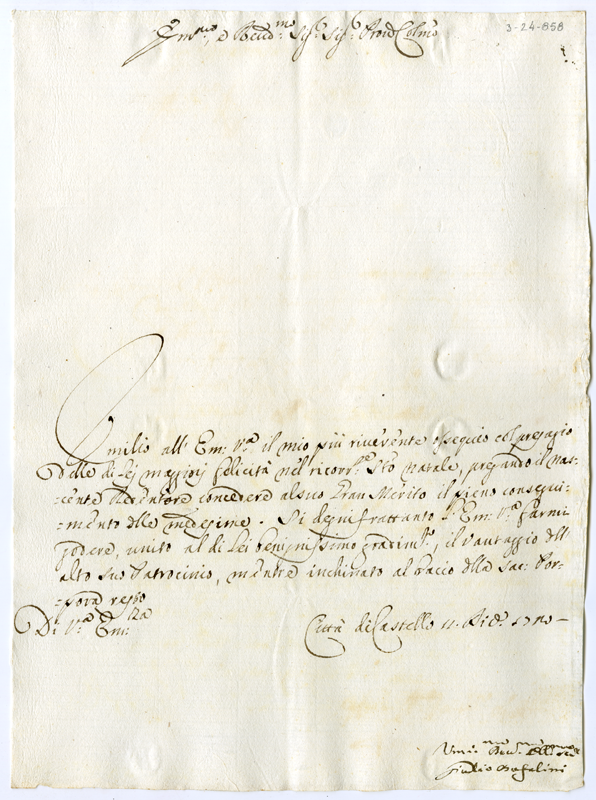 3-24-858
Em.mo, e Rev.mo Sig.r Sig.r Pron Colmo
Umilio all' Em: V.a il mio più riverente ossequio col presagio
delle di Lej maggiorj felicità nel ricorr.te S.to Natale, pregando il Nas-
-cente Redentore concedere al suo Gran Merito il pieno consegui-
-mento delle medesime. Si degni frattanto l' Em: V.a farmi
godere, unito al di Lei benignissimo gradim.to, il vantaggio dell'
alto suo Patrocinio, mentre inchinato al bacio della Sac: Por-
-pora resto
Di V.a Em:za
Città di Castello 11. Dic.e
Giulio Bufalini